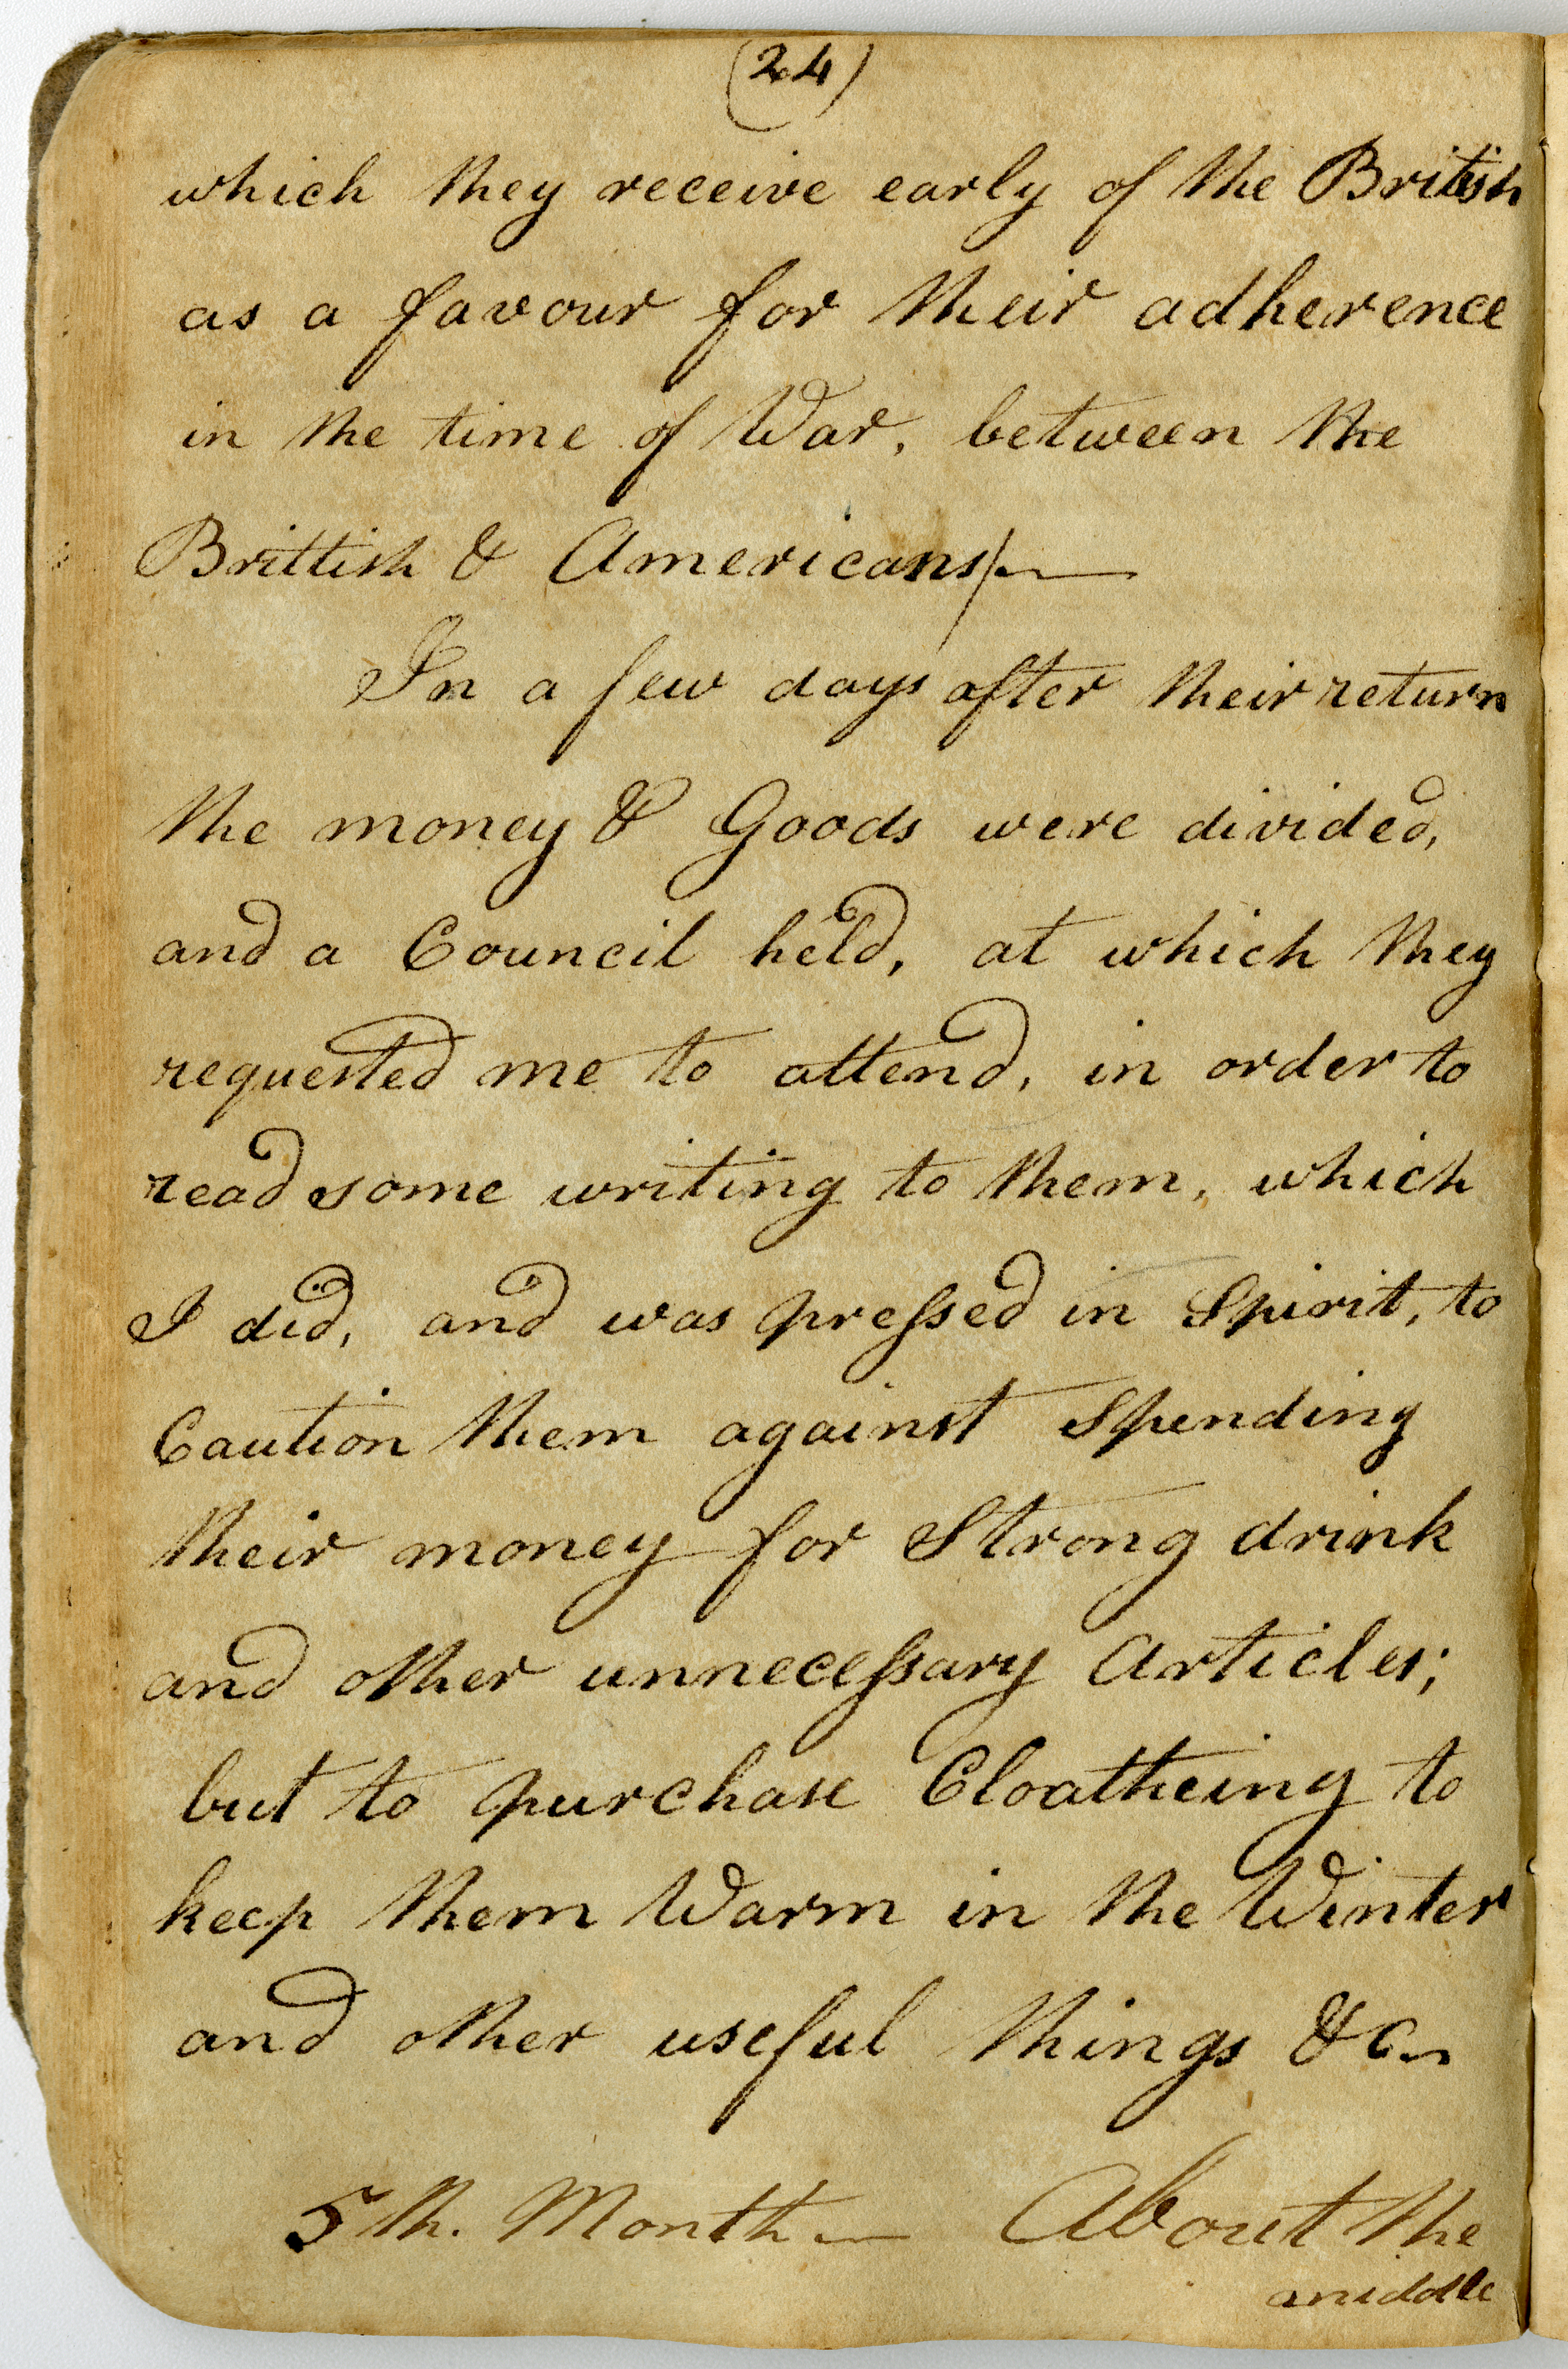 (24)
which they receive early of the British
as a favour for their adherence
in the time of War, between the
Brittish & Americans/—
In a few days after their return
the money & Goods were divided,
and a Council held, at which they
requested me to attend, in order to
read some writing to them, which
I did, and was pressed in Spirit, to
Caution them against Spending
their money for Strong drink
and other unnecessary Articles;
but to purchase Cloatheing to
keep them Warm in the Winter
and other useful things &c.
5th. Month — About the
middle